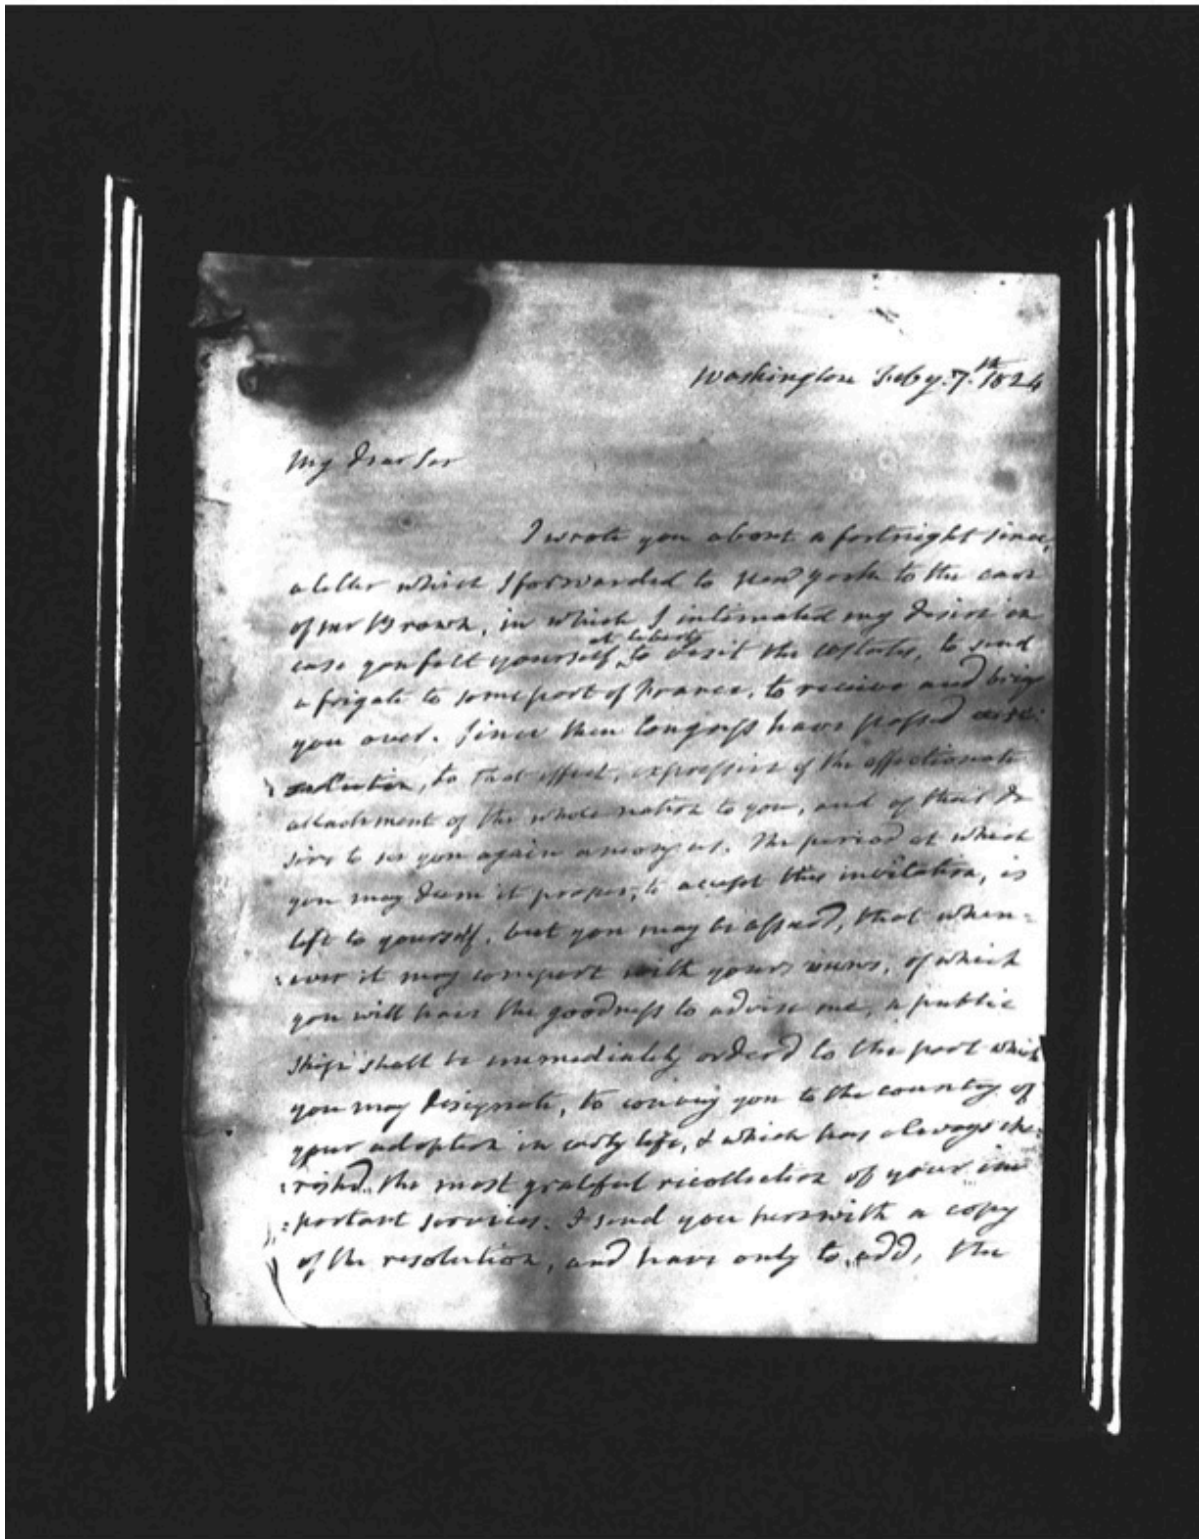 Washington Feby. 7.th 1824
My dear Sir
I wrote you about a fortnight since,
a letter which I forwarded to New york to the care
of mr Brown, in which I intimated my desire in
case you felt yourself at liberty to visit the UStates, to send
a frigate to some port of France, to receive and bring
you over. Since then Congress have passed
solution, to that effect, expressive of the affectionate
attachment of the whole nation to you, and of their de
sire to see you again among us. The period at which
you may deem it proper, to accept this invitation, is
left to yourself, but you may be assured, that when=
=ever it may comport with your views, of which
you will have the goodness to advise me, a public
ship shall be immediately orderd to the port which
you may designate, to convey you to the country of
your adoption in early life, & which has always che=
=rishd the most grateful recollection of your im
=portant services. I send you herewith a copy
of the resolution, and have only to add, the